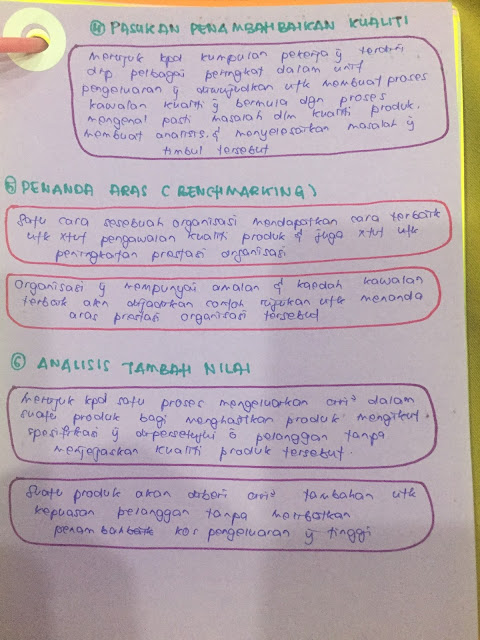 ④ PASUKAN PENAMBAHBAIKAN KUALITI
Merujuk kpd kumpulan pekerja ÿ terdiri
drp pelbagai peringkat dalam unit
pengeluaran ÿ diwujudkan utk membuat proses
kawalan kualiti ÿ bermula dgn proses
mengenal pasti masalah dlm kualiti produk,
membuat analisis & menyelesaikan masalah ÿ
timbul tersebut
⑤ PENANDA ARAS (BENCHMARKING)
Satu cara sesebuah organisasi mendapatkan cara terbaik
utk pengawalan kualiti produk & juga utk
peningkatan prestasi organisasi
Organisasi ÿ mempunyai amalan & kaedah kawalan
terbaik akn dijadikan contoh rujukan utk menanda
aras prestasi organisasi tersebut
⑥ ANALISIS TAMBAH NILAI
Merujuk kpd satu proses mengeluarkan ciri² dalam
suatu produk bagi menghasilkan produk mengikut
spesifikasi ÿ dipersetujui pelanggan tanpa
menjejaskan kualiti produk tersebut.
Suatu produk akan diberi ciri² tambahan utk
kepuasan pelanggan tanpa melibatkan
penambahan kos pengeluaran ÿ tinggi